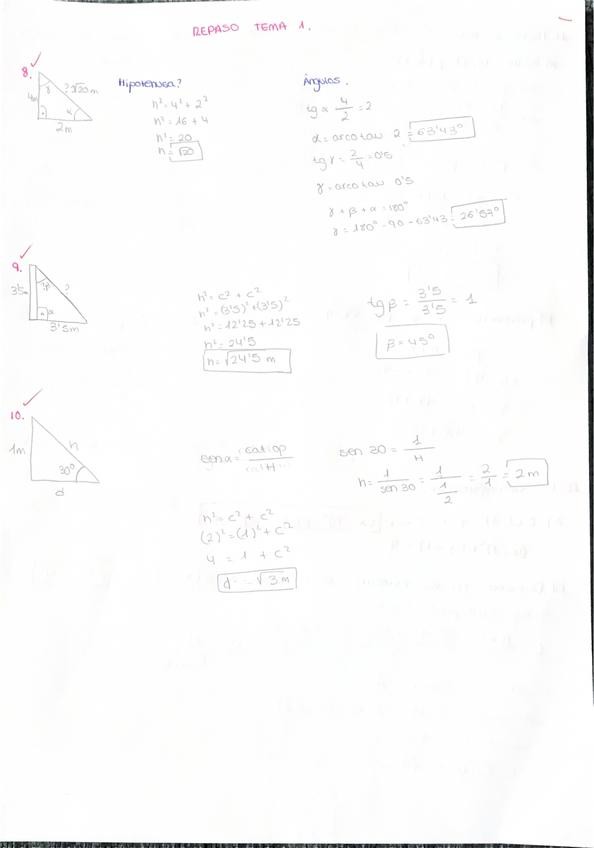 REPASO TEMA 1.
8.
4m
γ
? √20 m
α
2m
Hipotenusa?
h² = 4² + 2²
h² = 16 + 4
h² = 20
h = √20
Ángulos.
tg α 4/2 = 2
α = arcotan 2 = 63'43°
tg γ = 2/4 = 0'5
γ = arcotan 0'5
γ + β + α = 180°
γ = 180° - 90 - 63'43 = 26'57°
9.
3'5
?
3'5m
h² = c² + c²
h² = (3'5)² + (3'5)²
h² = 12'25 + 12'25
h² = 24'5
h = √24'5 m
tg β = 3'5/3'5 = 1
β = 45°
10.
1m
h
30°
d
sen α =
sen 30 = 1/H
h = 1/sen 30 = 1/(1/2) = 2/1 = 2m
h² = c² + c²
(2)² = (1)² + c²
4 = 1 + c²
d = √3 m